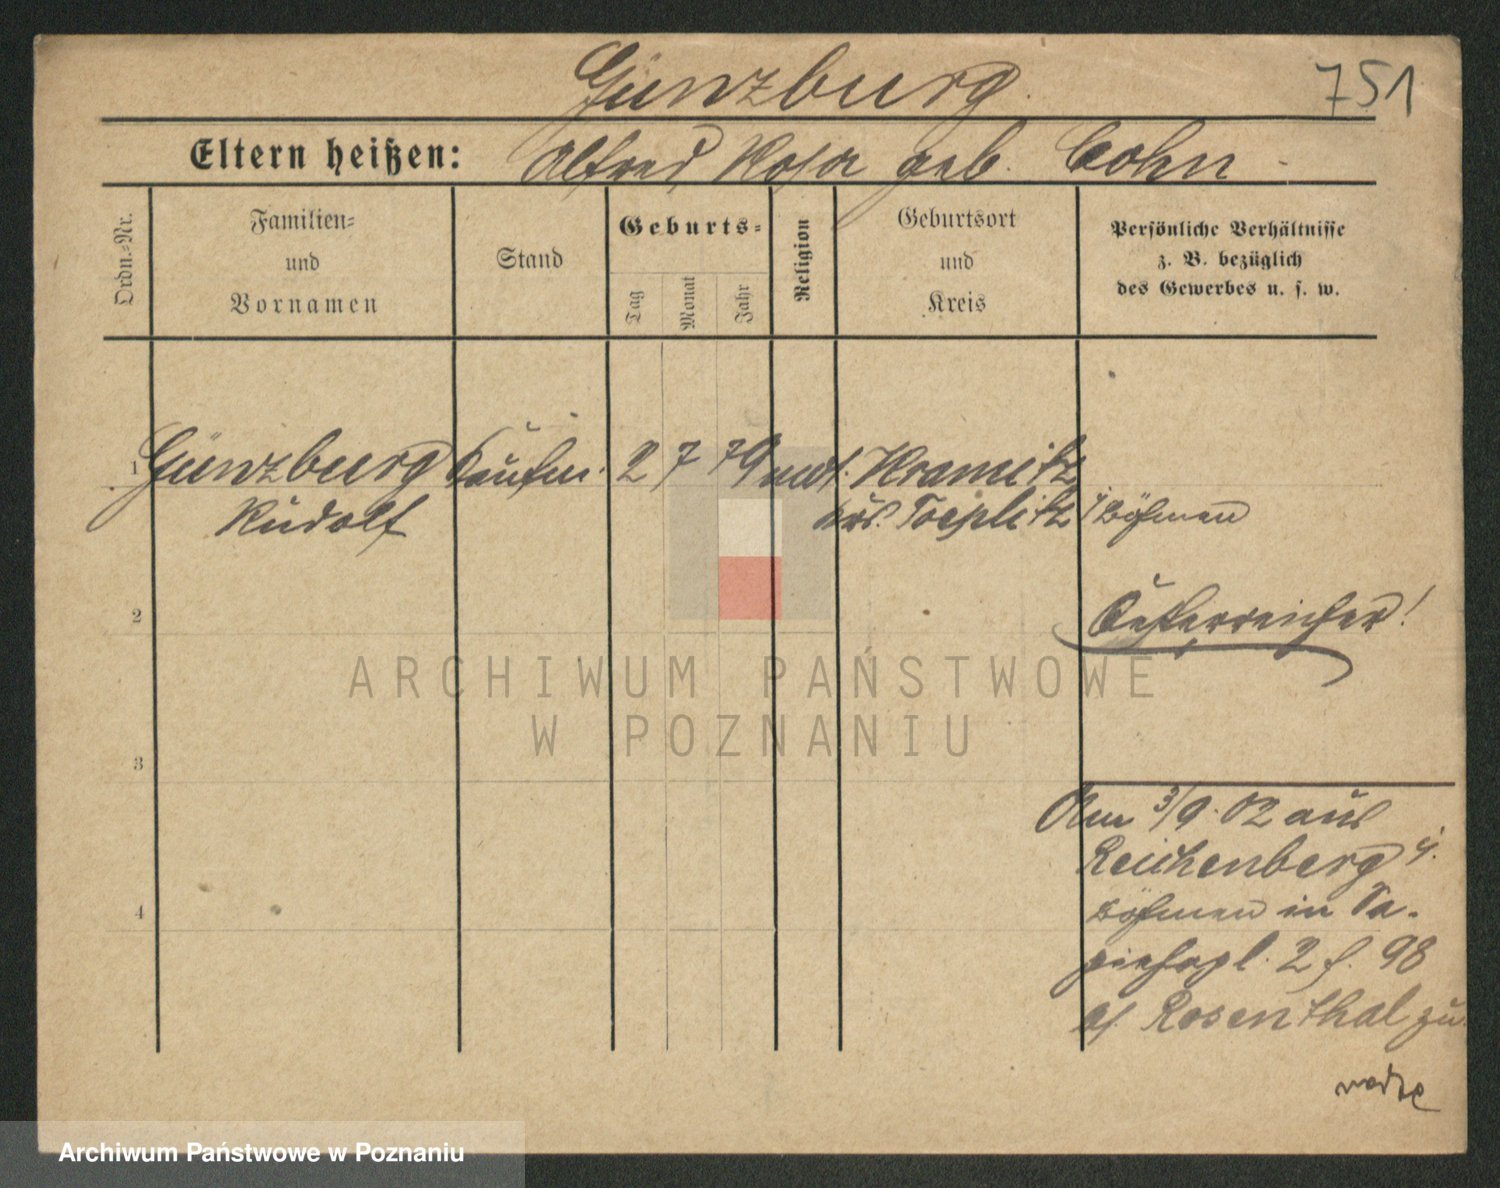 Günzburg.
751
Eltern heißen: Alfred, Rosa geb. Cohn -
Ordn.-Nr.
Familien-
und
Vornamen
Stand
Geburts-
Tag
Monat
Jahr
Religion
Geburtsort
und
Kreis
Persönliche Verhältnisse
z. B. bezüglich
des Gewerbes u. s. w.
1 Günzburg Kaufm. 2 7 79 mos. Kramitz
Rudolf Krs. Toeplitz i/Böhmen
2
Oesterreicher!
ARCHIWUM PAŃSTWOWE
W POZNANIU
3
Am 3/9. 02 aus
Reichenberg i.
Böhmen in Sa-
4
piehapl. 2 f. 98
bei Rosenthal zu
Archiwum Państwowe w Poznaniu